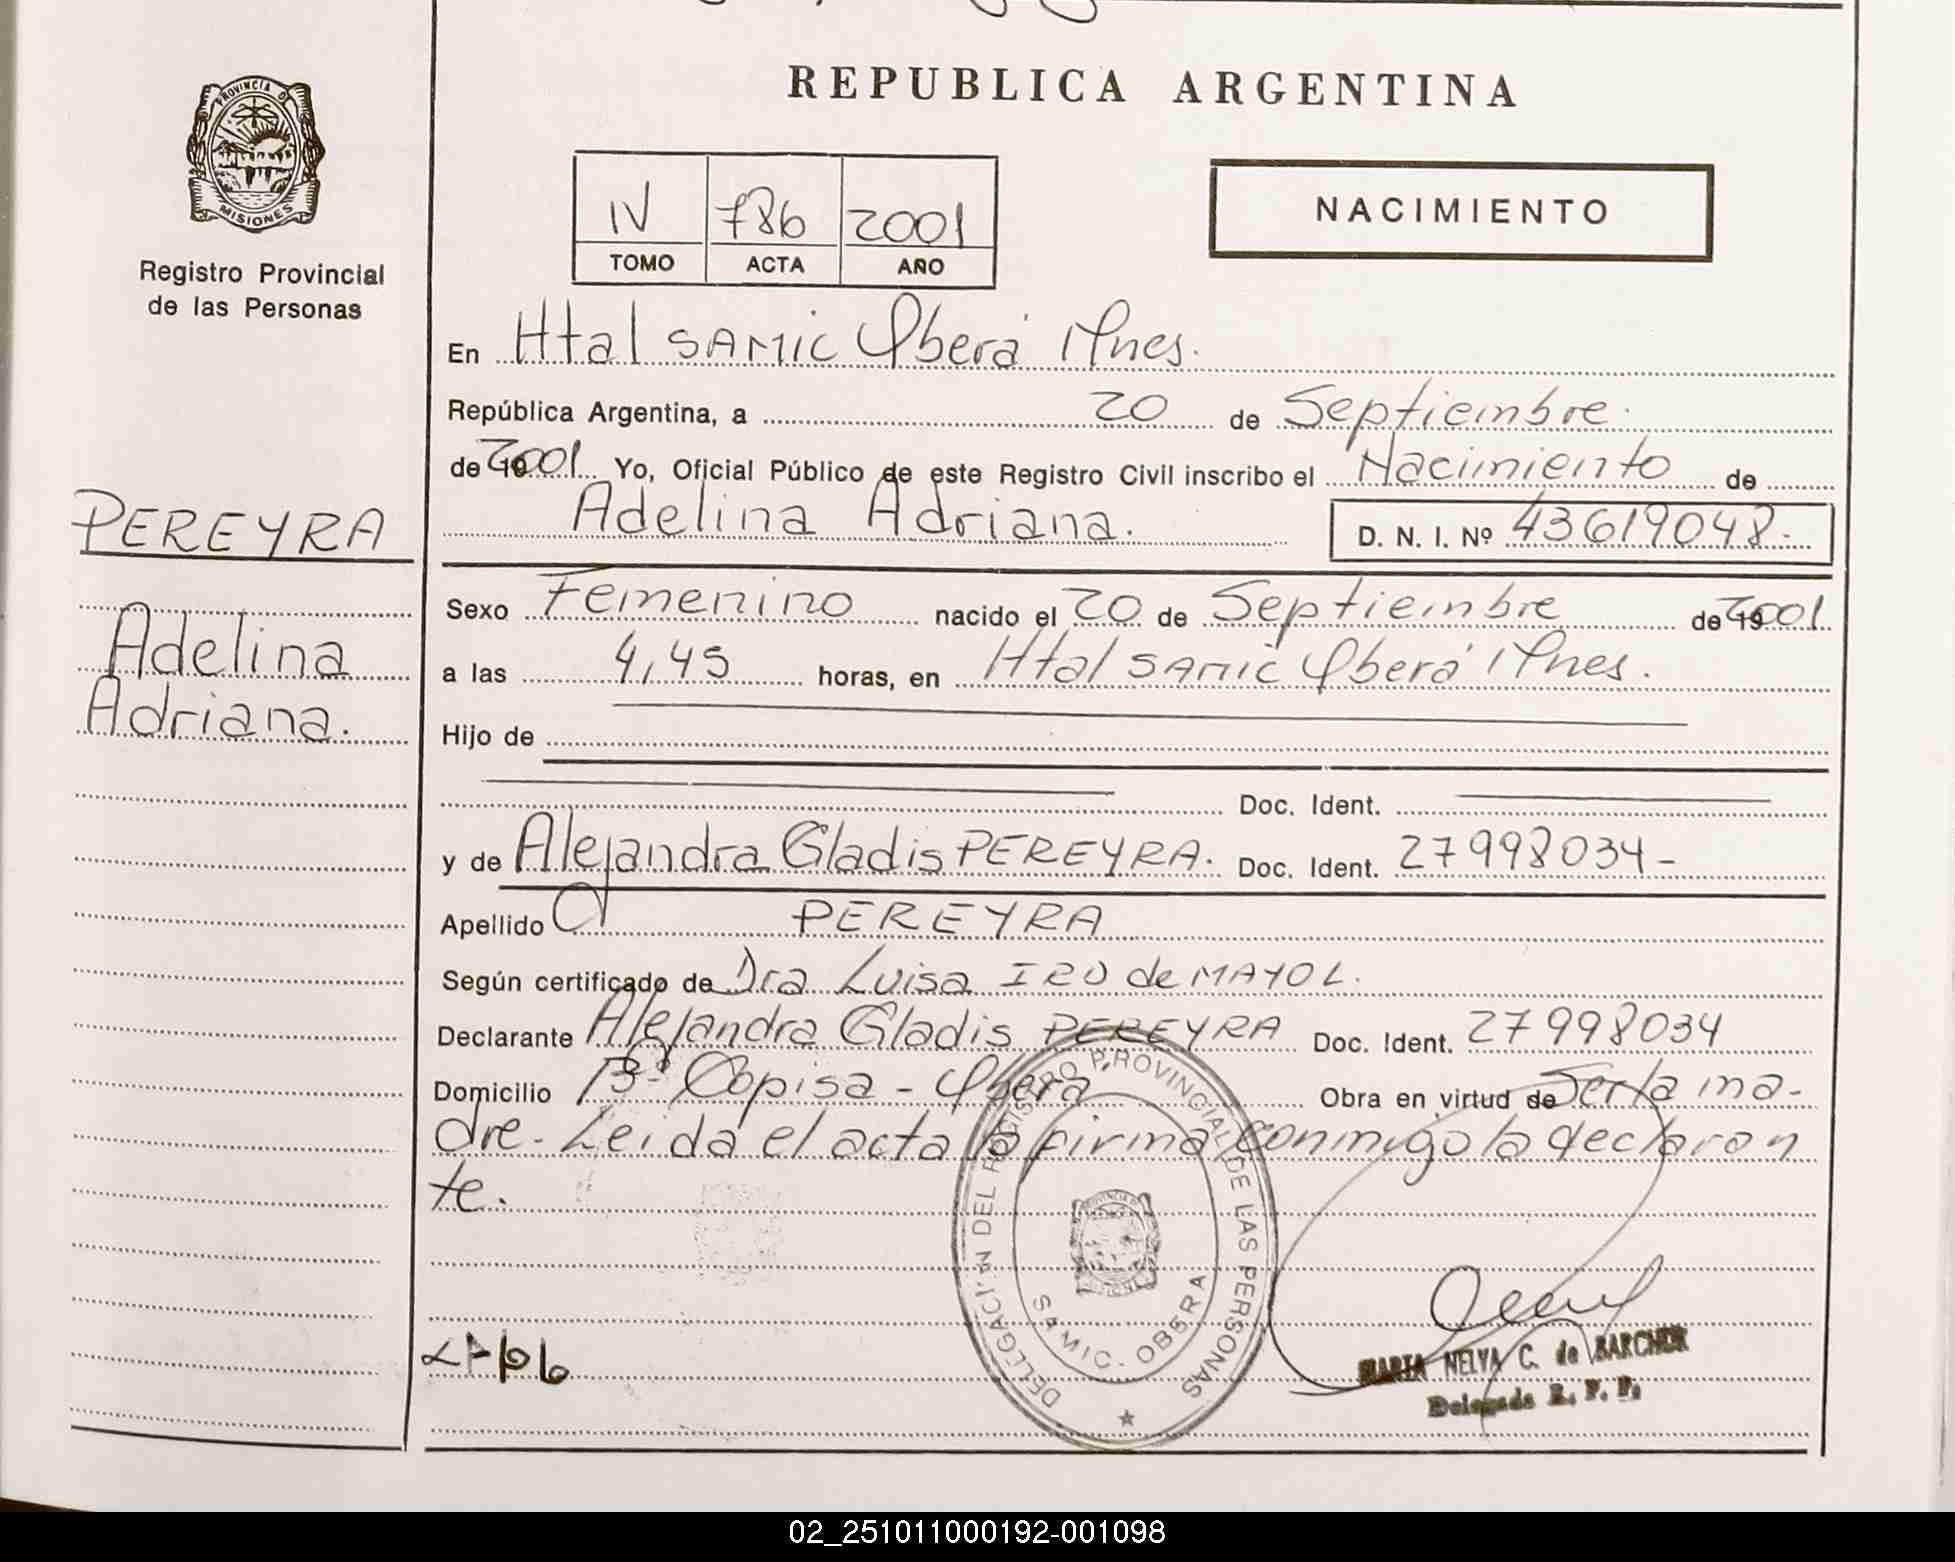 REPUBLICA ARGENTINA
PROVINCIA D
MISIONES
Registro Provincial
de las Personas
IV 786 2001
TOMO ACTA AÑO
NACIMIENTO
En Htal SAMIC Oberá Mnes.
República Argentina, a 20 de Septiembre
de 2001 Yo, Oficial Público de este Registro Civil inscribo el Nacimiento de
Adelina Adriana. D. N. I. Nº 43619048.-
PEREYRA
Adelina
Adriana.
Sexo Femenino nacido el 20 de Septiembre de 2001
a las 4,45 horas, en Htal SAMIC Oberá Mnes.
Hijo de
Doc. Ident.
y de Alejandra Gladis PEREYRA. Doc. Ident. 27998034-
Apellido PEREYRA
Según certificado de Dra Luisa IRO de MAYOL.
Declarante Alejandra Gladis PEREYRA Doc. Ident. 27998034
Domicilio Bº Copisa - Oberá Obra en virtud de Ser la ma-
dre. Leída el acta la firma conmigo la declaran
te.
DELEGACION DEL REGISTRO PROVINCIAL DE LAS PERSONAS
SAMIC. OBERA
MARIA NELVA C. de BARCHUK
Delegada R. P. P.
02_251011000192-001098